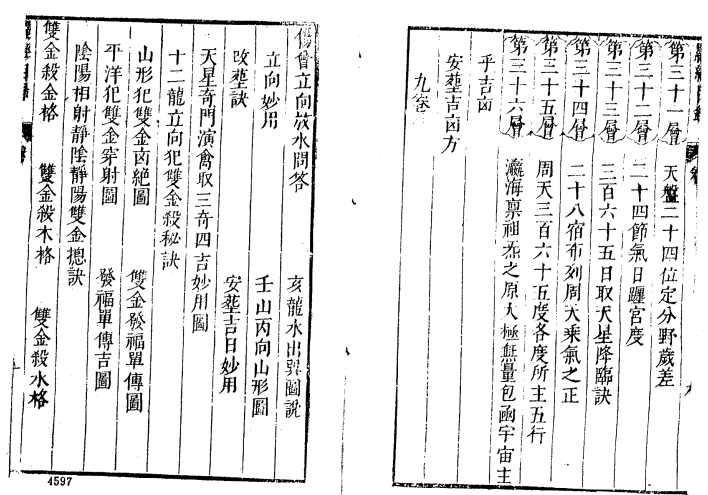 第三十一層 天盤二十四位定分野歲差
第三十二層 二十四節氣日躔宮度
第三十三層 三百六十五日取天星降臨訣
第三十四層 二十八宿布列周天乘氣之正
第三十五層 周天三百六十五度各度所主五行
第三十六層 瀛海禀祖炁之原大極無量包凾宇宙主
乎吉凶
安塟吉凶方
九
曾立向放水問答 亥龍水出巽圖說
立向妙用 壬山丙向山形圖
改塟訣 安塟吉日妙用
天星奇門演禽取三奇四吉妙用圖
十二龍立向犯雙金殺秘訣
山形犯雙金凶絕圖 雙金發福單傳圖
平洋犯雙金穿射圖 發福單傳吉圖
陰陽相射靜陰靜陽雙金摠訣
雙金殺金格 雙金殺木格 雙金殺水格
4597